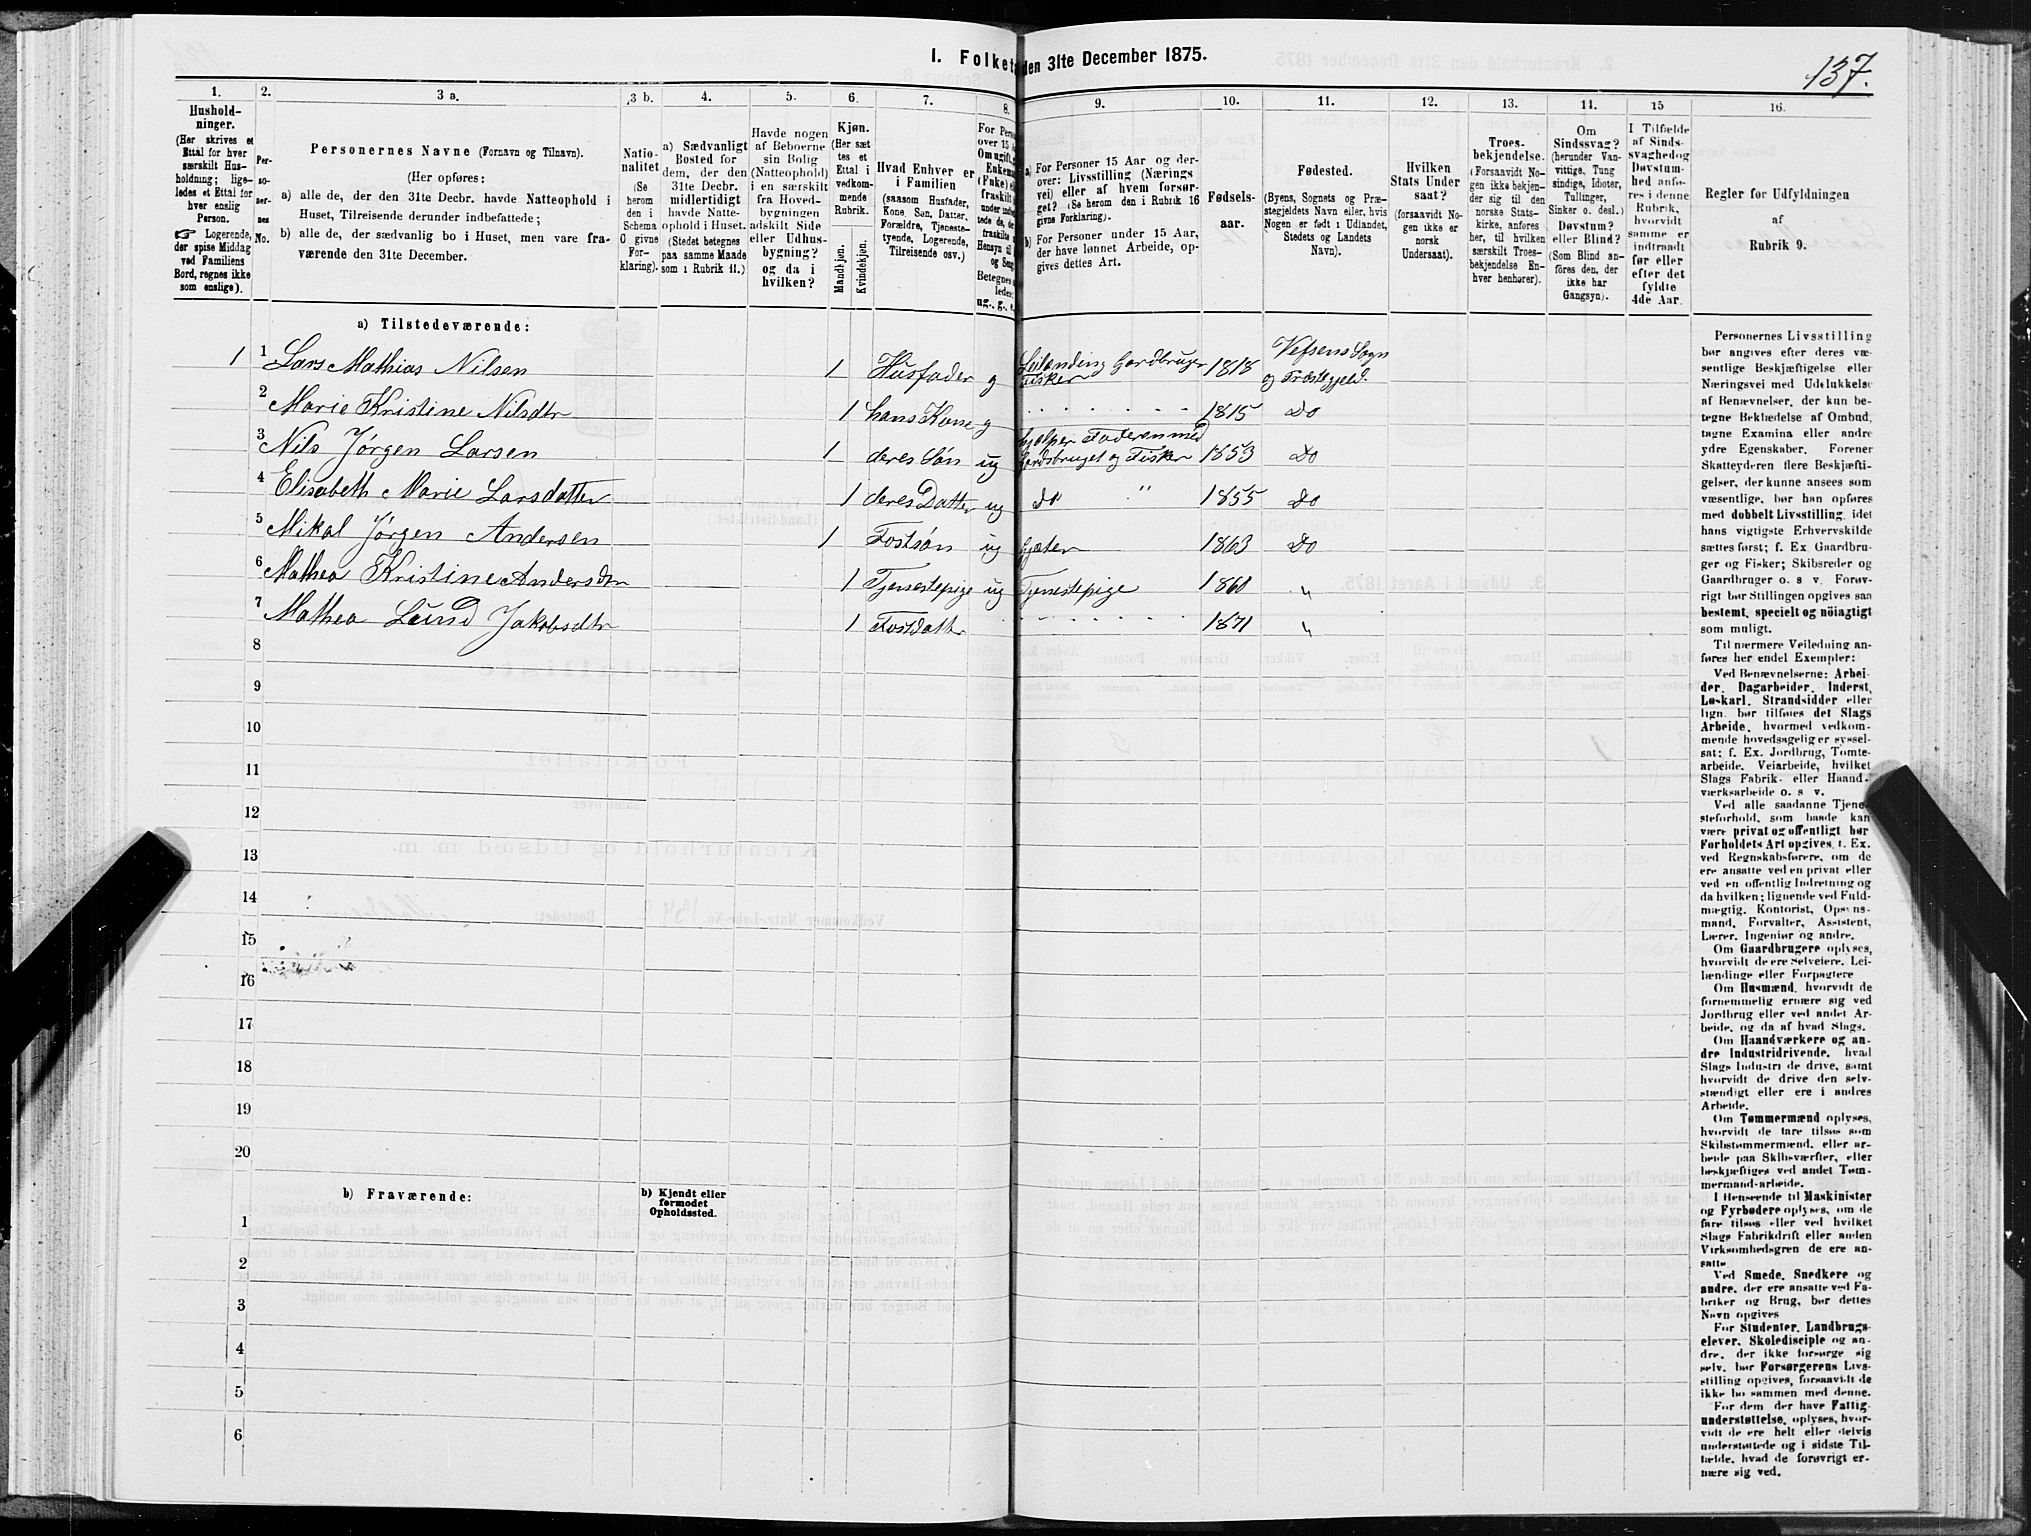 137.
I. Folket den 31te December 1875.
1. 2. 3 a. 3 b. 4. 5. 6. 7. 8. 9. 10. 11. 12. 13. 14. 15 16.
Hushold-
ninger.
(Her skrives et
Ettal for hver
særskilt Hus-
holdning; lige-
ledes et Ettal for
hver enslig
Person.
☞ Logerende,
der spise Middag
ved Familiens
Bord, regnes ikke
som enslige).
Per-
so-
ner-
nes
No.
Personernes Navne (Fornavn og Tilnavn).
(Her opføres:
a) alle de, der den 31te Decbr. havde Natteophold i
Huset, Tilreisende derunder indbefattede;
b) alle de, der sædvanlig bo i Huset, men vare fra-
værende den 31te December.
Natio-
nalitet
(Se
herom
den i
Schema
C givne
For-
klaring).
a) Sædvanligt
Bosted for
dem, der den
31te Decbr.
midlertidigt
havde Natte-
ophold i Huset.
(Stedet betegnes
paa samme Maade
som i Rubrik 11.)
Havde nogen
af Beboerne
sin Bolig
(Natteophold)
i en særskilt
fra Hoved-
bygningen
adskilt Side
eller Udhus-
bygning?
og da i
hvilken?
Kjøn.
(Her sæt
tes et
Ettal i
vedkom-
mende
Rubrik.
Mandkjøn.
Kvindekjøn.
Hvad Enhver er
i Familien
(saasom Husfader,
Kone, Søn, Datter,
Forældre, Tjeneste-
tyende, Logerende,
Tilreisende osv.)
For Pers
over 15 A
Om ugift,
Enkema
(Fnke)
fraskilt
a) For Personer 15 Aar og der-
over: Livsstilling (Nærings
vei) eller af hvem forsør-
get? (Se herom den i Rubrik 16
givne Forklaring).
b) For Personer under 15 Aar,
der have lønnet Arbeide, op-
gives dettes Art.
Fødsels-
aar.
Fødested.
(Byens, Sognets og Præ-
stegjeldets Navn eller, hvis
Nogen er født i Udlandet,
Stedets og Landets
Navn).
Hvilken
Stats Under
saat?
(forsaavidt No-
gen ikke er
norsk
Undersaat).
Troes-
bekjendelse.
(Forsaavidt No-
gen ikke bekjen-
der sig til den
norske Stats-
kirke, anføres
her, til hvilken
særskilt Troes-
bekjendelse En-
hver henhører).
Om
Sindssvag?
(herunder Van-
vittige, Tung
sindige, Idioter,
Tullinger,
Sinker o. desl.)
Døvstum?
eller Blind?
(Som Blind an-
føres den, der
ikke har
Gangsyn).
I Tilfælde
af Sinds-
svaghed og
Døvstum-
hed anfø-
res i denne
Rubrik,
hvorvidt
samme er
indtraadt
før eller
efter det
fyldte
4de Aar.
Regler for Udfyldningen
af
Rubrik 9.
a) Tilstedeværende:
1 1 Lars Mathias Nilsen 1 Husfader g Leilænding Gardbruger Fisker 1818 Vefsens Sogn og Præstegjeld.
2 Marie Kristine Nilsdtr 1 hans Kone g 1815 Do
3 Nils Jørgen Larsen 1 deres Søn ug hjælper Faderen med Gardsbruget og Fisker 1853 Do
4 Elisabeth Marie Larsdatter 1 deres Datter ug do " 1855 Do
5 Mikal Jørgen Andersen 1 Fostsøn ug Gjæter 1863 Do
6 Mathea Kristine Andersdtr 1 Tjenestepige ug Tjenestepige 1860 "
7 Mathea Lund Jakobsdtr 1 Fostdattr 1871 "
8
9
10
11
12
13
14
15
16
17
18
19
20
b) Fraværende:
b) Kjendt eller
formodet
Opholdssted.
1
2
3
4
5
6
Personernes Livsstilling
bør angives efter deres væ-
sentlige Beskjæftigelse eller
Næringsvei med Udelukkelse
af Benævnelser, der kun be-
tegne Beklædelse af Ombud,
tagne Examina eller andre
ydre Egenskaber. Forener
Skatteyderen flere Beskjæfti-
gelser, der kunne ansees som
væsentlige, bør han opføres
med dobbelt Livsstilling, idet
hans vigtigste Erhvervskilde
sættes først; f. Ex Gaardbru-
ger og Fisker; Skibsreder og
Gaardbruger o. s v. Forøv-
rigt bør Stillingen opgives saa
bestemt, specielt og nöiagtigt
som muligt.
Til nærmere Veiledning an-
føres her endel Exempler:
Ved Benævnelserne: Arbei-
der, Dagarbeider, Inderst,
Løskarl, Strandsidder eller
lign. bør tilføies det Slags
Arbeide, hvormed vedkom-
mende hovedsagelig er syssel-
sat; f. Ex. Jordbrug, Tomte-
arbeide, Veiarbeide, hvilket
Slags Fabrik- eller Haand-
værksarbeide o. s v.
Ved alle saadanne Tjene-
steforhold, som baade kan
være privat og offentligt, bør
Forholdets Art opgives, f. Ex.
ved Regnskabsførere, om de
ere ansatte ved en privat eller
ved en offentlig Indretning og
da hvilken; lignende ved Fuld-
mægtig, Kontorist, Opsyns-
mand, Forvalter, Assistent,
Lærer, Ingeniør og andre.
Om Gaardbrugere oplyses,
hvorvidt de ere Selveiere, Lei-
lændinge eller Forpagtere
Om Husmænd, hvorvidt de
fornemmelig ernære sig ved
Jordbrug eller ved andet Ar-
beide, og da af hvad Slags.
Om Haandværkere og an-
dre Industridrivende, hvad
Slags Industri de drive, samt
hvorvidt de drive den selv-
stændigt eller ere i andres
Arbeide.
Om Tømmermænd oplyses,
hvorvidt de fare tilsøs som
Skibstømmermænd, eller ar-
beide paa Skibsværfter, eller
beskjæftiges ved andet Tøm-
mermand-arbeide.
I Henseende til Maskinister
og Fyrbødere oplyses, om de
fare tilsøs eller ved hvilket
Slags Fabrikdrift eller anden
Virksomhedsgren de ere an-
satte
Ved Smede, Snedkere og
andre, der ere ansatte ved Fa-
briker og Brug, bør dettes
Navn opgives
For Studenter, Landbrugs-
elever, Skoledisciple og an-
dre, der ikke forsørge sig
selv, bør Forsørgerens Livs-
stilling opgives, forsaavidt de
ikke bo sammen med denne.
For dem, der have Fattig-
understøttelse, oplyses, hvor-
vidt de ere helt eller delvis
understøttede og i sidste Til-
fælde, hvad de forøvrigt er-
nære sig ved.